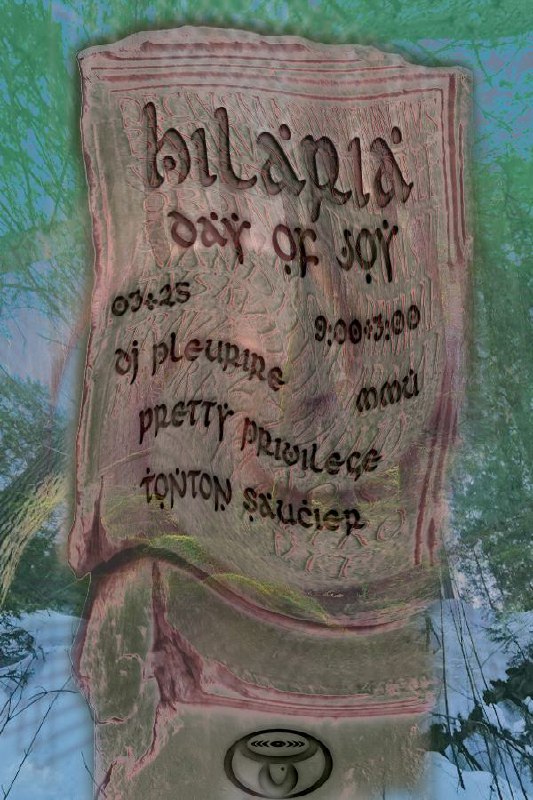 HILARIA
DAY OF JOY
03+25
9:00+3:00
DJ PLEURIRE
MMÜ
PRETTY PRIVILEGE
TONTON SAUCIER